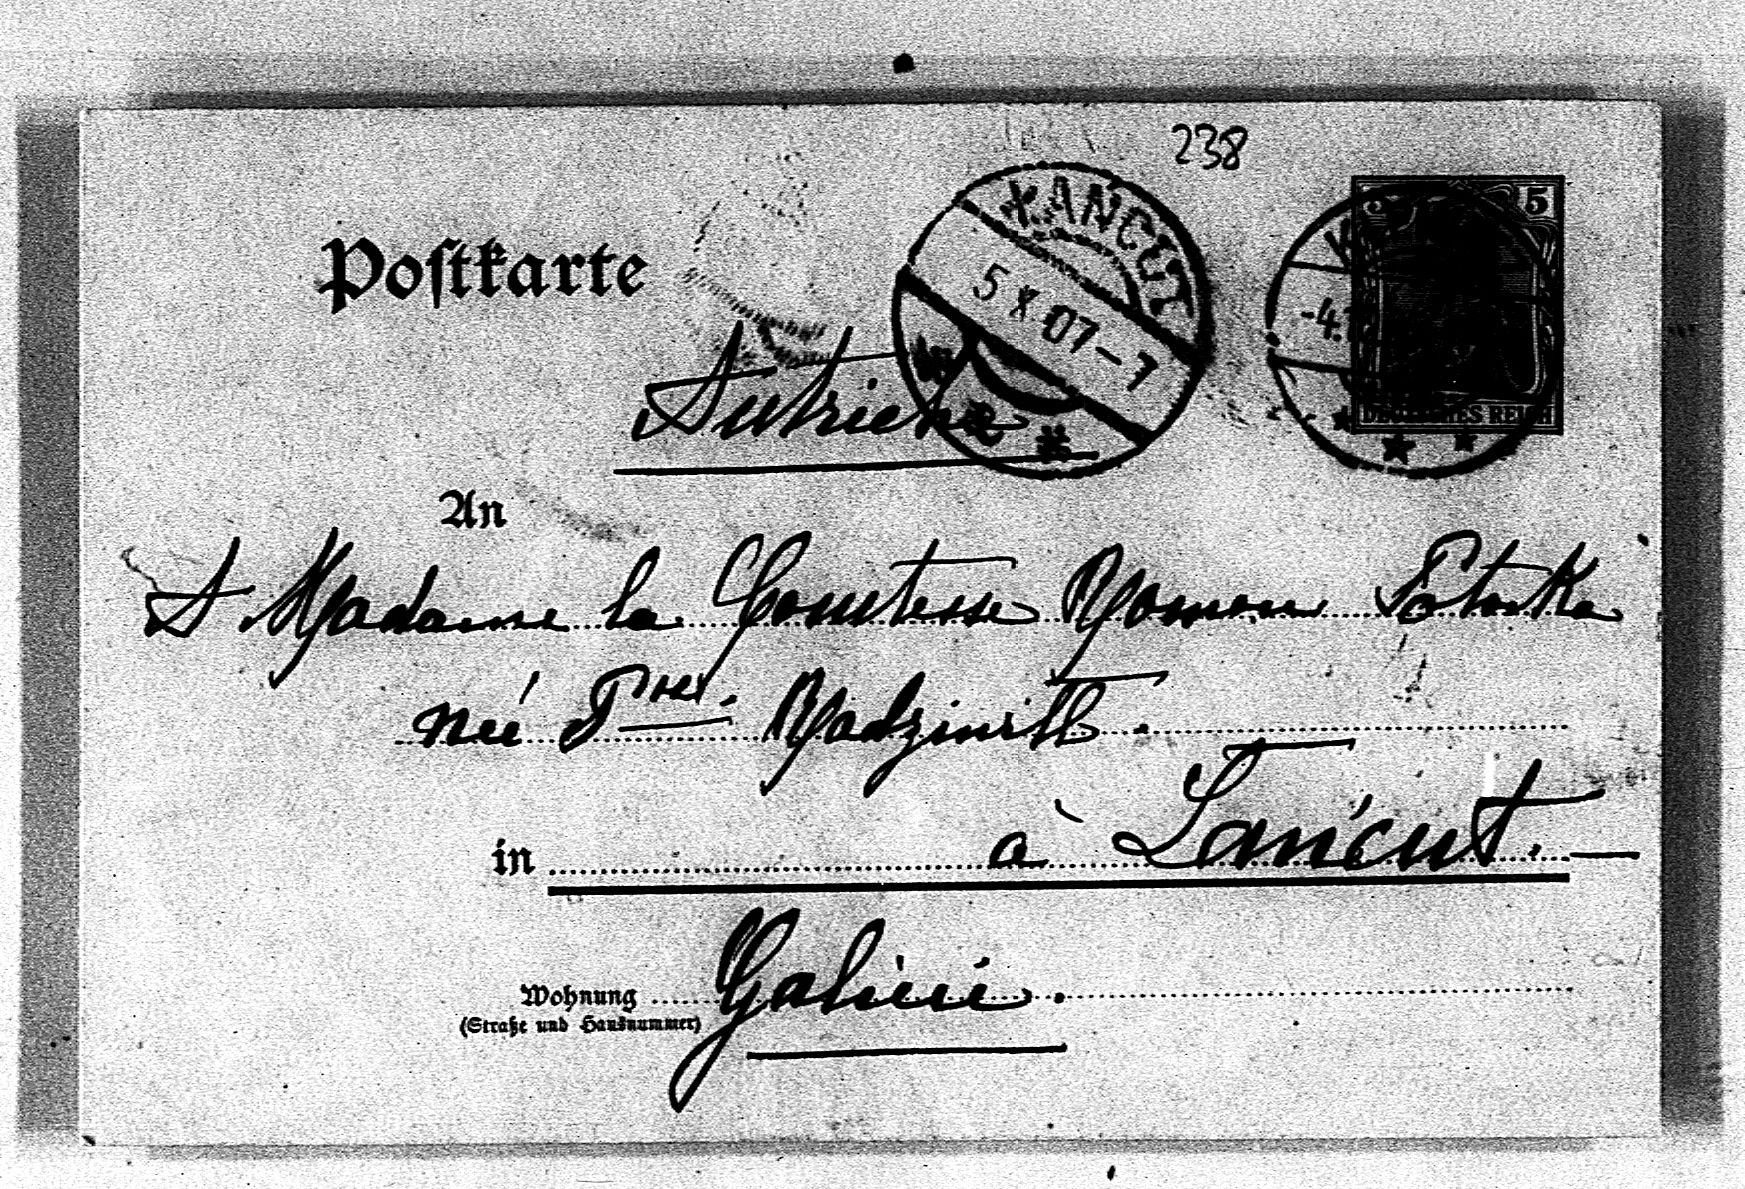 238
ŁAŃCUT
5 X 07-7
5
-4.
DEUTSCHES REICH
Postkarte
Autriche
An
A Madame la Comtesse Roman Potocka
née Pcesse. Radziwill.
in à Łańcut.
Wohnung Galicie.
(Straße und Hausnummer)